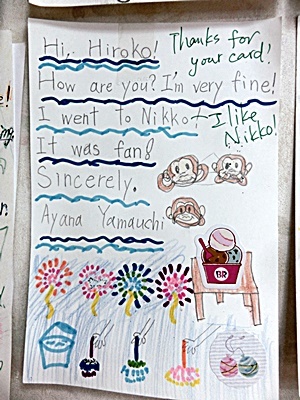 Hi, Hiroko!
Thanks for
your card!
How are you? I'm very fine!
I went to Nikko.
I like
Nikko!
It was fan!
Sincerely.
Ayana Yamauchi
BR